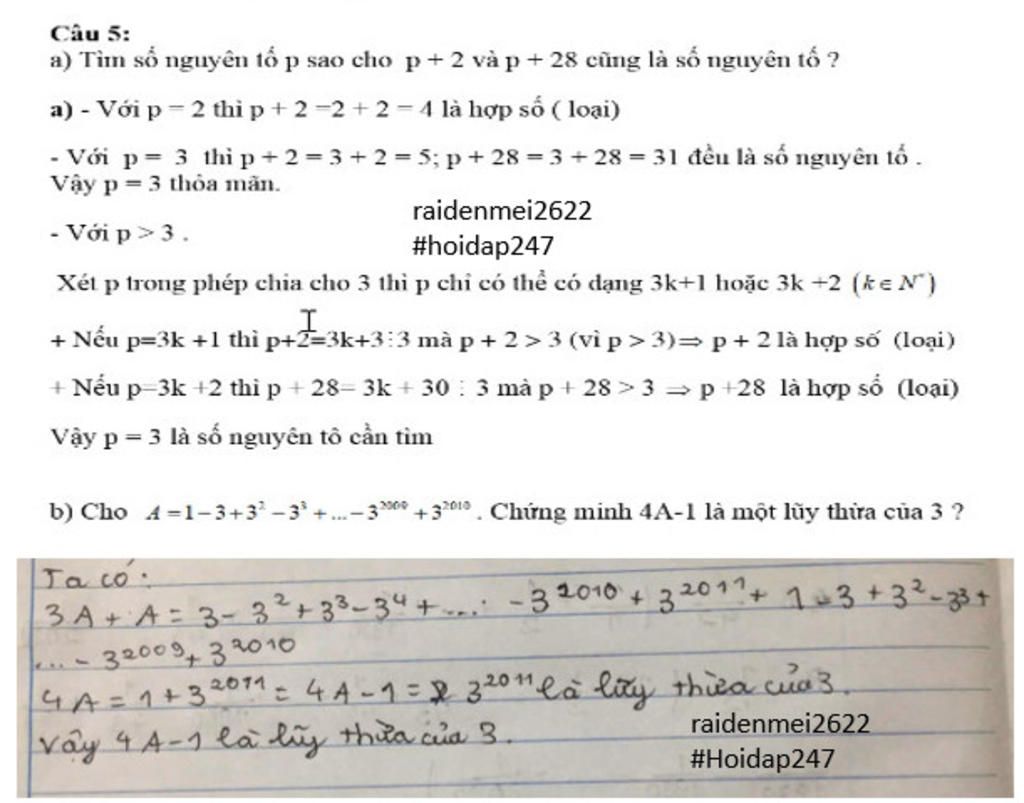 Câu 5:
a) Tìm số nguyên tố p sao cho p + 2 và p + 28 cũng là số nguyên tố ?
a) - Với p = 2 thì p + 2 =2 + 2 = 4 là hợp số ( loại)
- Với p = 3 thì p + 2 = 3 + 2 = 5; p + 28 = 3 + 28 = 31 đều là số nguyên tố .
Vậy p = 3 thỏa mãn.
raidenmei2622
- Với p > 3 .
#hoidap247
Xét p trong phép chia cho 3 thì p chỉ có thể có dạng 3k+1 hoặc 3k +2 (k ∈ N*)
+ Nếu p=3k +1 thì p+2=3k+3⋮3 mà p + 2 > 3 (vì p > 3)⇒ p + 2 là hợp số (loại)
+ Nếu p=3k +2 thì p + 28= 3k + 30 ⋮ 3 mà p + 28 > 3 ⇒ p +28 là hợp số (loại)
Vậy p = 3 là số nguyên tô cần tìm
b) Cho A = 1 − 3 + 3² − 3³ + ... − 3²⁰⁰⁹ + 3²⁰¹⁰ . Chứng minh 4A-1 là một lũy thừa của 3 ?
Ta có:
3A + A = 3 - 3² + 3³ - 3⁴ + .... - 3²⁰¹⁰ + 3²⁰¹¹ + 1 - 3 + 3² - 3³ +
... - 3²⁰⁰⁹ + 3²⁰¹⁰
4A = 1 + 3²⁰¹¹ = 4A - 1 = 3²⁰¹¹ là lũy thừa của 3.
Vậy 4A-1 là lũy thừa của 3.
raidenmei2622
#Hoidap247